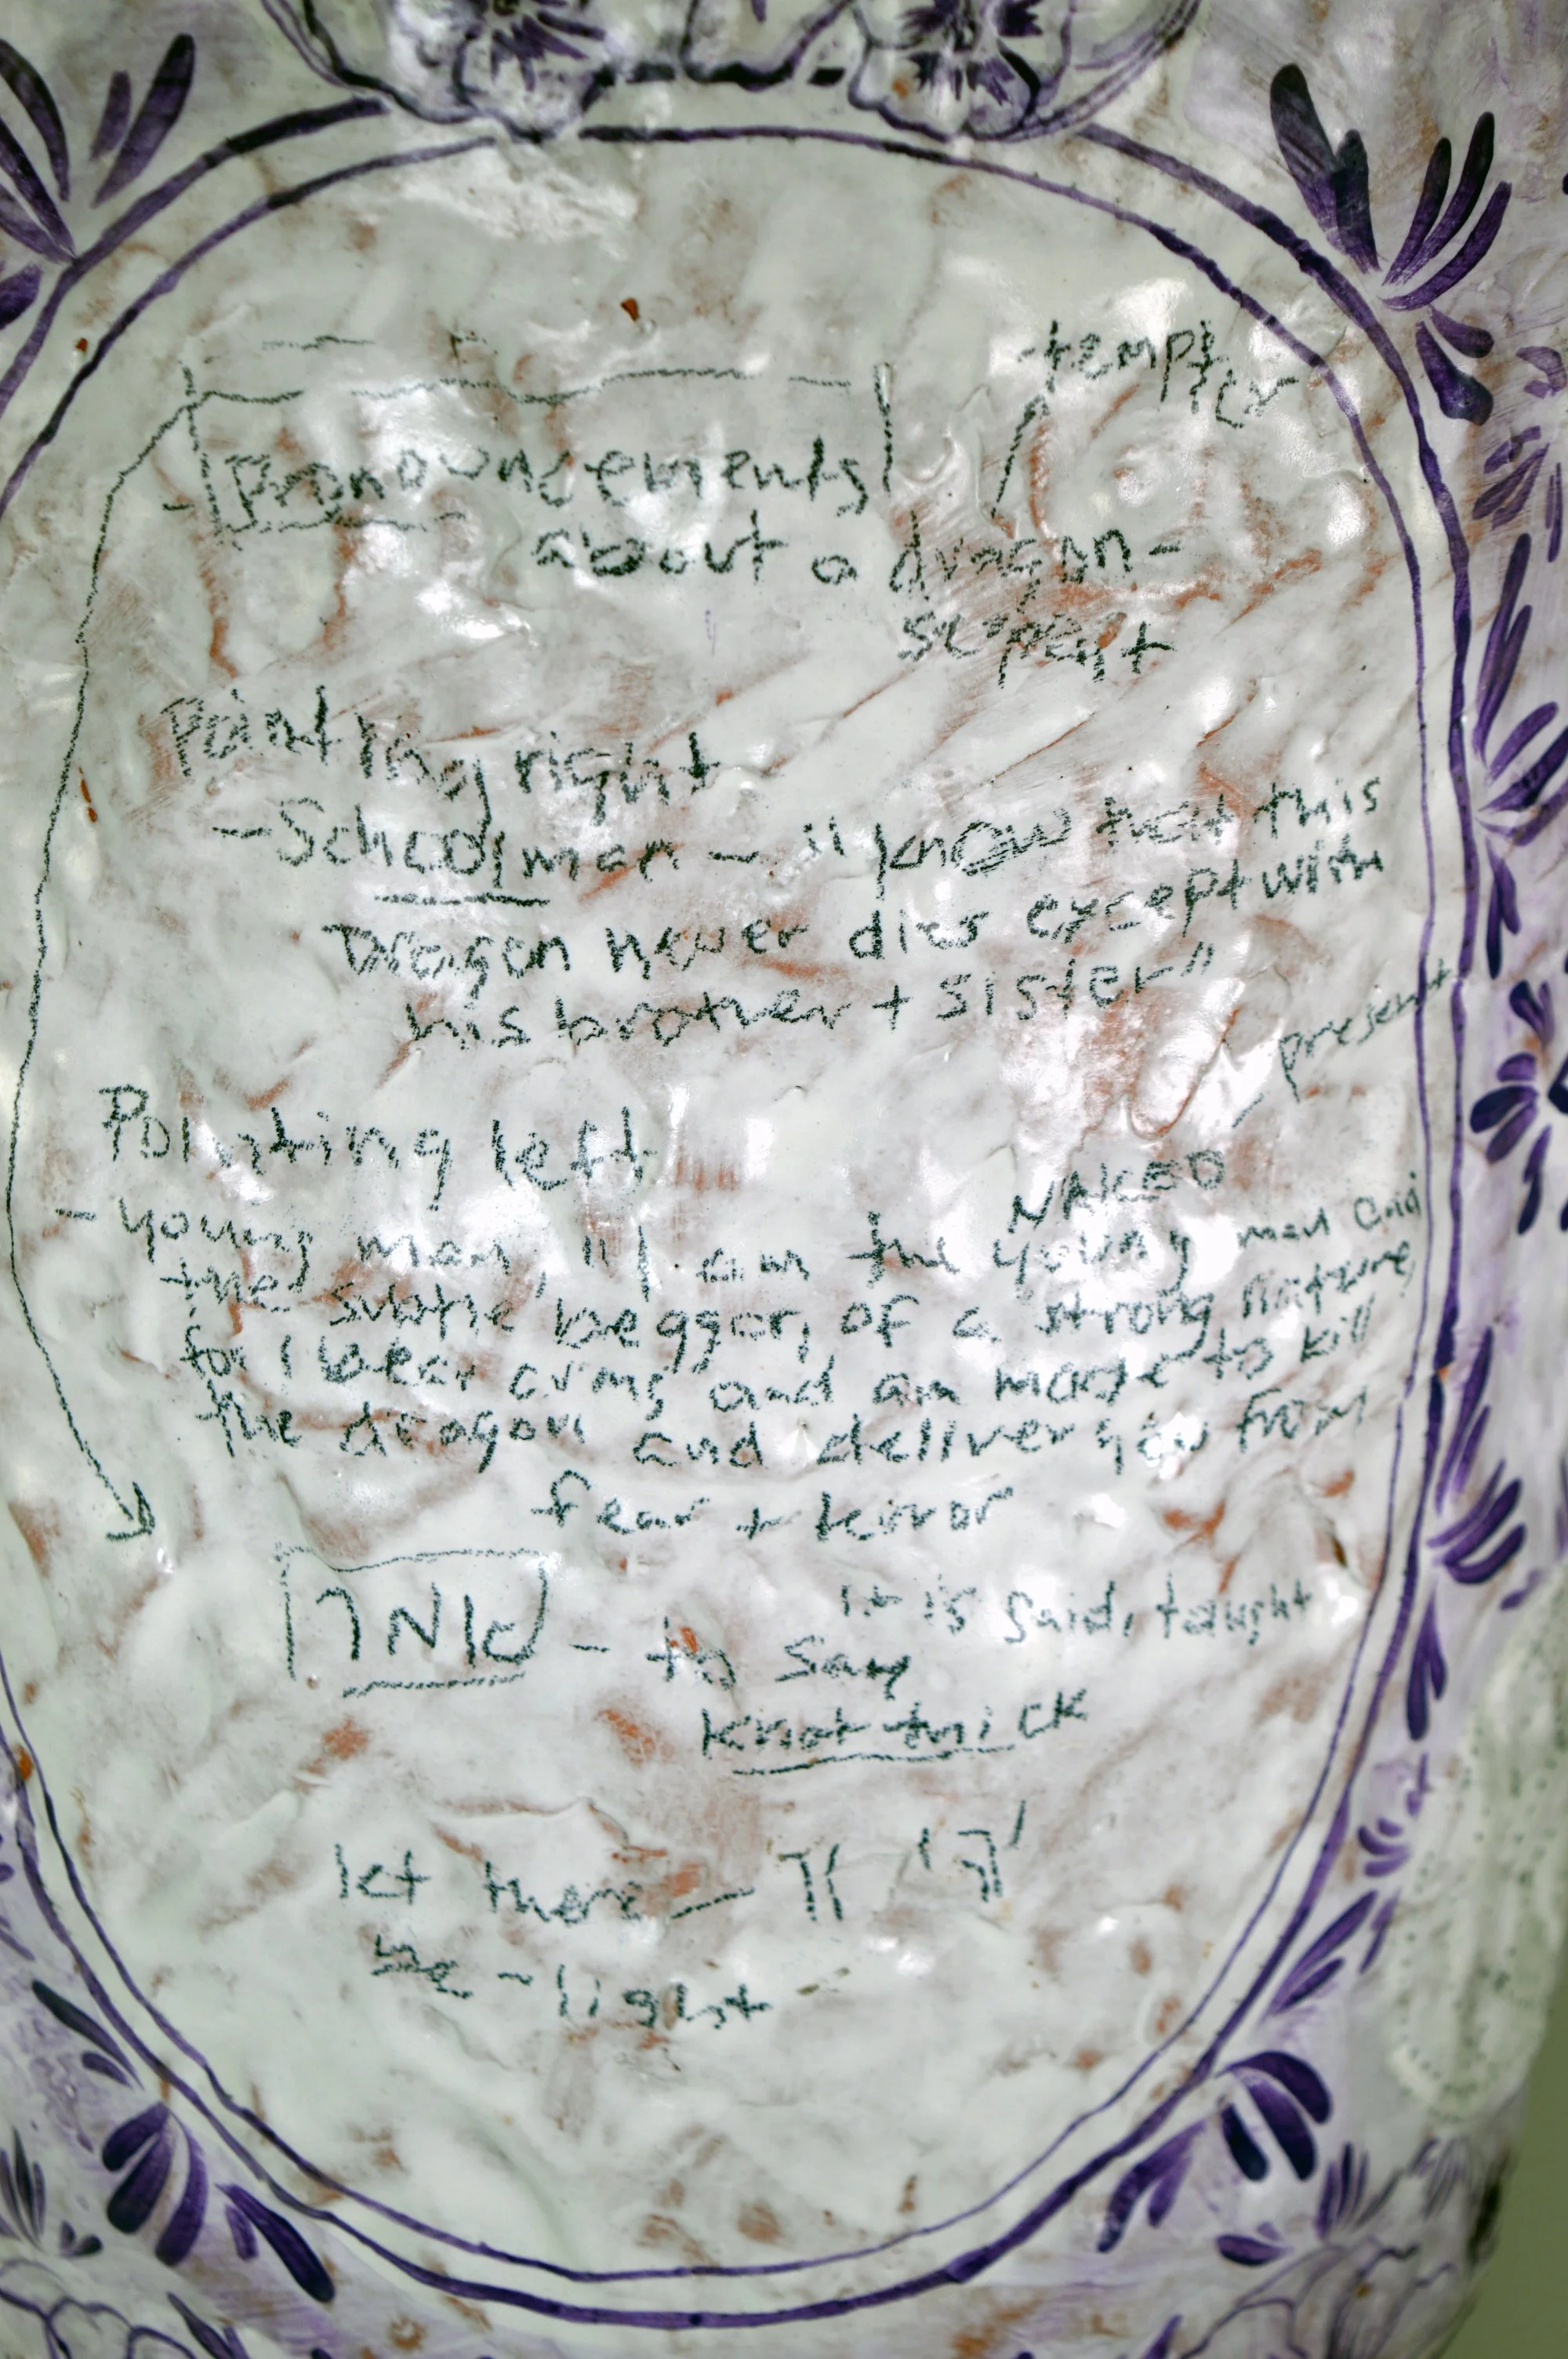 tempter
Pronouncements
about a dragon-
serpent
Pointing right
- Schoolman - "know that this
Dragon never dies except with
his brother + sister"
present
Pointing left
NAKED
- young man, "I am the young man and
the subtle beggar, of a strong nature,
for I bear arms and am made to kill
the dragon and deliver you from
fear + terror
it is said, taught
- to say
knot trick
let there -
be - light